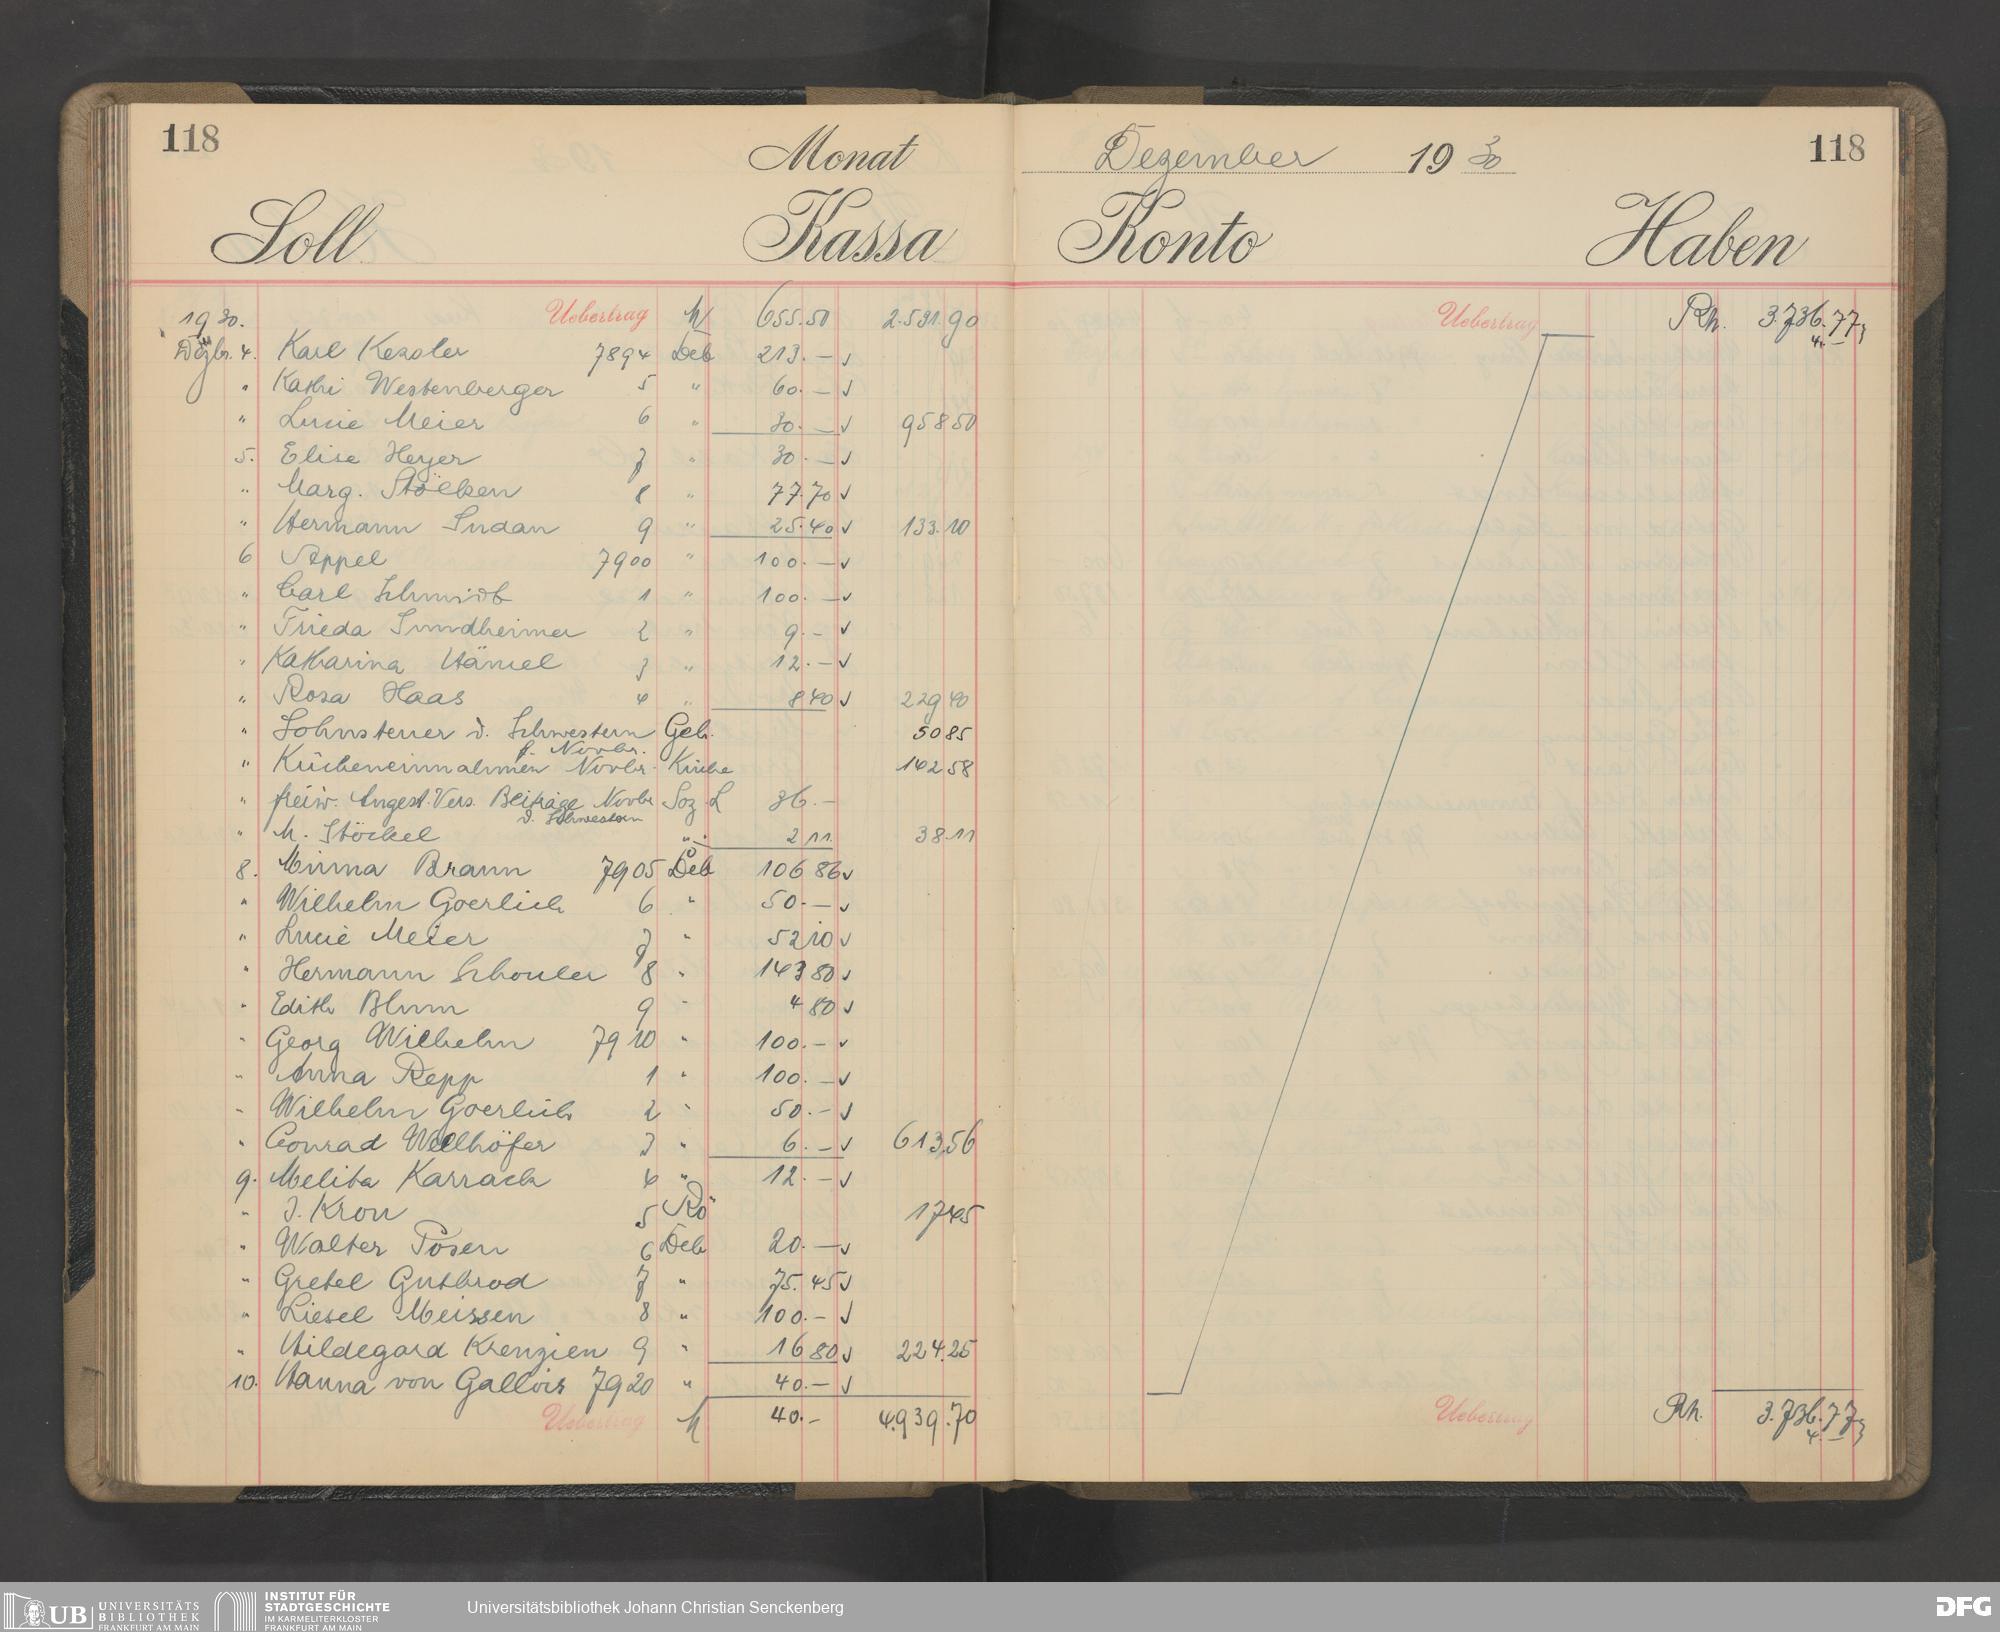 118 Monat Dezember 19 30 118
Soll Kassa Konto Haben
1930. Uebertrag M 655.50 2.531.90
Dezbr. 4. Karl Kessler 7894 Deb 213.—
" Kathi Westenberger 5 " 60.—
" Lucie Meier 6 " 30.— 958 50
5. Elise Heyer 7 " 30.—
" Marg. 8 " 77.70
" Hermann Sudan 9 " 25.40 133.10
6 Appel 7900 " 100.—
" Carl Schmidt 1 " 100.—
" Frieda Sundheimer 2 " 9.—
" Katharina Hänsel 3 " 12.—
" Rosa Haas 4 " 8 40 229 40
" Lohnsteuer d. Schwestern Geh. 50 85
f. Novbr.
" Kücheneinnahmen Novbr. Küche 142 58
" freiw. Angest. Vers. Beiträge Novbr Soz. L 36.—
d. Schwestern
" M. Stöckel " 2 11 38.11
8. Minna Braun 7905 Deb 106 86
" Wilhelm Goerlich 6 " 50.—
" Lucie Meier 7 " 52 10
" Hermann Schouler 8 " 143 80
" Edith Blum 9 " 4 80
" Georg Wilhelm 7910 " 100.—
" Anna Repp 1 " 100.—
" Wilhelm Goerlich 2 " 50.—
" Conrad Wellhöfer 3 " 6.— 613,56
9. Melita Karrach 4 " 12.—
" J. Kron 5 Rö 17 45
" Walter Posen 6 Deb 20.—
" Gretel Gutbrod 7 " 75.45
" Liesel Meissen 8 " 100.—
" Hildegard Krenzien 9 " 16 80 224.25
10. Hanna von Gallois 7920 " 40.—
Uebertrag M 40.— 4.939.70
Uebertrag Rh. 3.736.77
4.—
Uebertrag Rh. 3.736.77
4.—
UB UNIVERSITÄTS
BIBLIOTHEK
FRANKFURT AM MAIN
INSTITUT FÜR
STADTGESCHICHTE
IM KARMELITERKLOSTER
FRANKFURT AM MAIN
Universitätsbibliothek Johann Christian Senckenberg
DFG